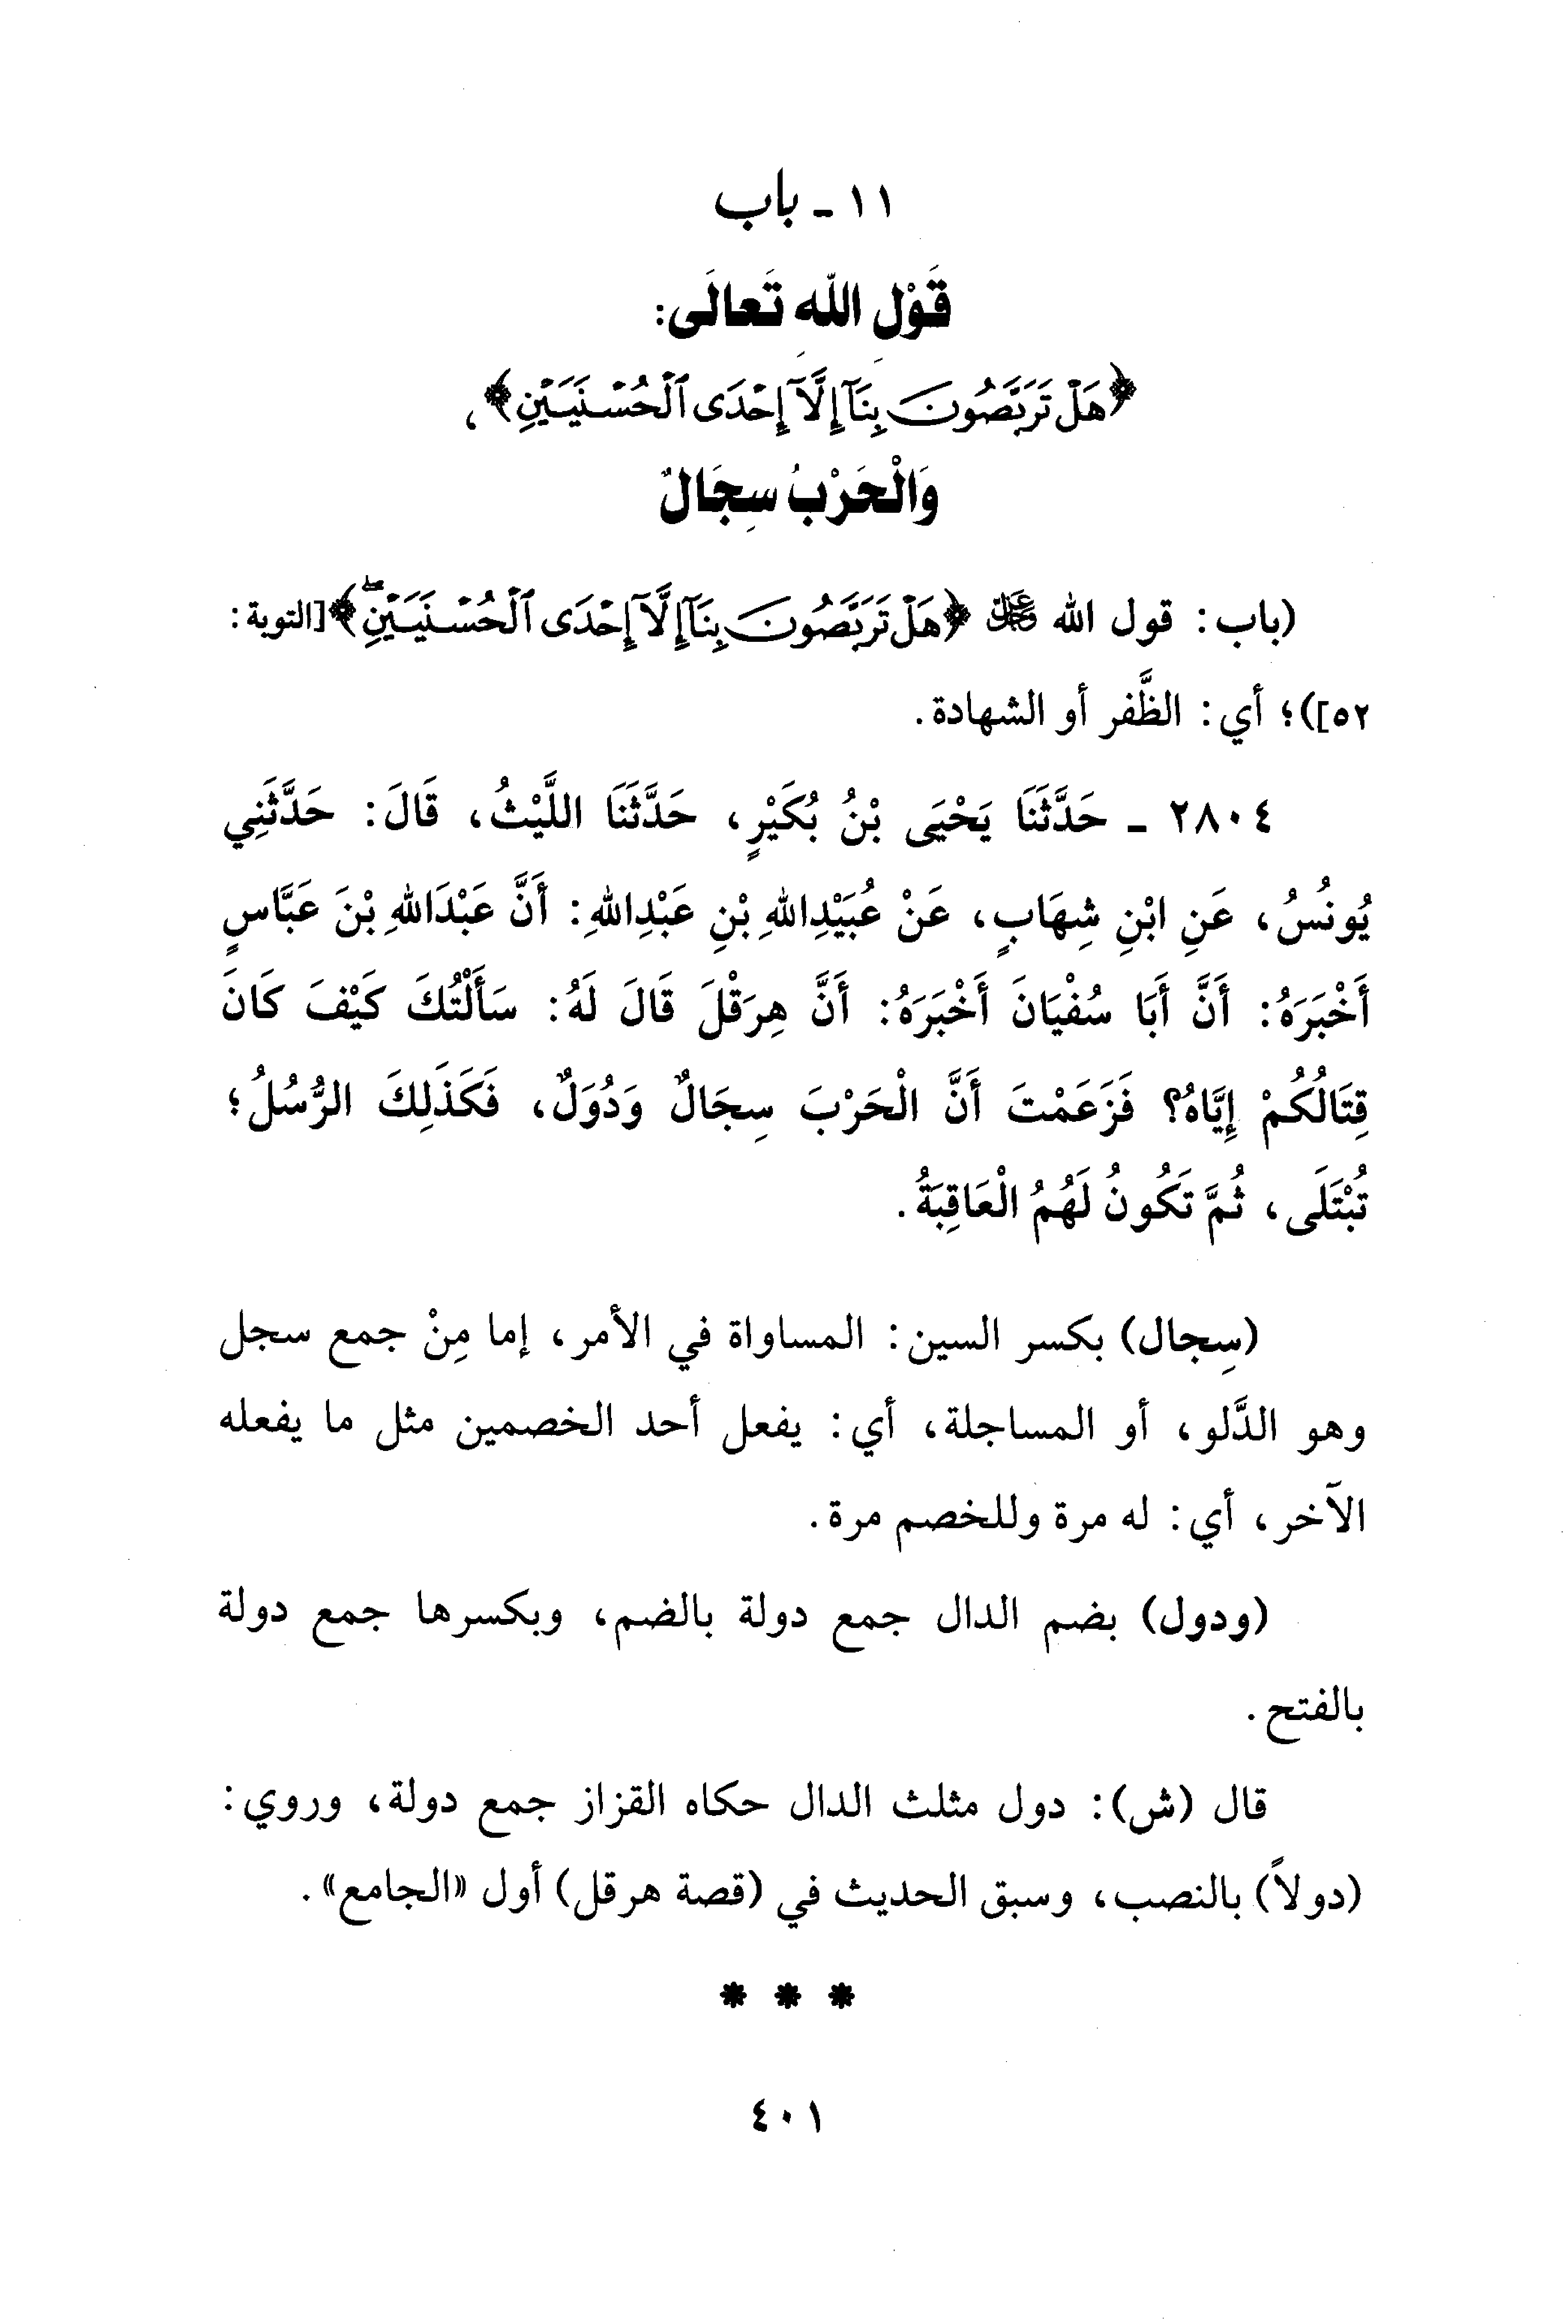 ١١ - باب
قَوْلِ اللهِ تَعالَى:
﴿هَلْ تَرَبَّصُونَ بِنَآ إِلَّآ إِحْدَى ٱلْحُسْنَيَيْنِ﴾،
وَالْحَرْبُ سِجَالٌ
(باب: قول الله ﷿ ﴿هَلْ تَرَبَّصُونَ بِنَآ إِلَّآ إِحْدَى ٱلْحُسْنَيَيْنِۖ﴾ [التوبة:
٥٢])؛ أي: الظَّفر أو الشهادة.
٢٨٠٤ - حَدَّثَنَا يَحْيَى بْنُ بُكَيْرٍ، حَدَّثَنَا اللَّيْثُ، قَالَ: حَدَّثَنِي
يُونُسُ، عَنِ ابْنِ شِهَابٍ، عَنْ عُبَيْدِاللهِ بْنِ عَبْدِاللهِ: أَنَّ عَبْدَاللهِ بْنَ عَبَّاسٍ
أَخْبَرَهُ: أَنَّ أَبَا سُفْيَانَ أَخْبَرَهُ: أَنَّ هِرَقْلَ قَالَ لَهُ: سَأَلْتُكَ كَيْفَ كَانَ
قِتَالُكُمْ إِيَّاهُ؟ فَزَعَمْتَ أَنَّ الْحَرْبَ سِجَالٌ وَدُوَلٌ، فَكَذَلِكَ الرُّسُلُ؛
تُبْتَلَى، ثُمَّ تَكُونُ لَهُمُ الْعَاقِبَةُ.
(سِجال) بكسر السين: المساواة في الأمر، إما مِنْ جمع سجل
وهو الدَّلو، أو المساجلة، أي: يفعل أحد الخصمين مثل ما يفعله
الآخر، أي: له مرة وللخصم مرة.
(ودول) بضم الدال جمع دولة بالضم، وبكسرها جمع دولة
بالفتح.
قال (ش): دول مثلث الدال حكاه القزاز جمع دولة، وروي:
(دولاً) بالنصب، وسبق الحديث في (قصة هرقل) أول «الجامع».
* * *
٤٠١